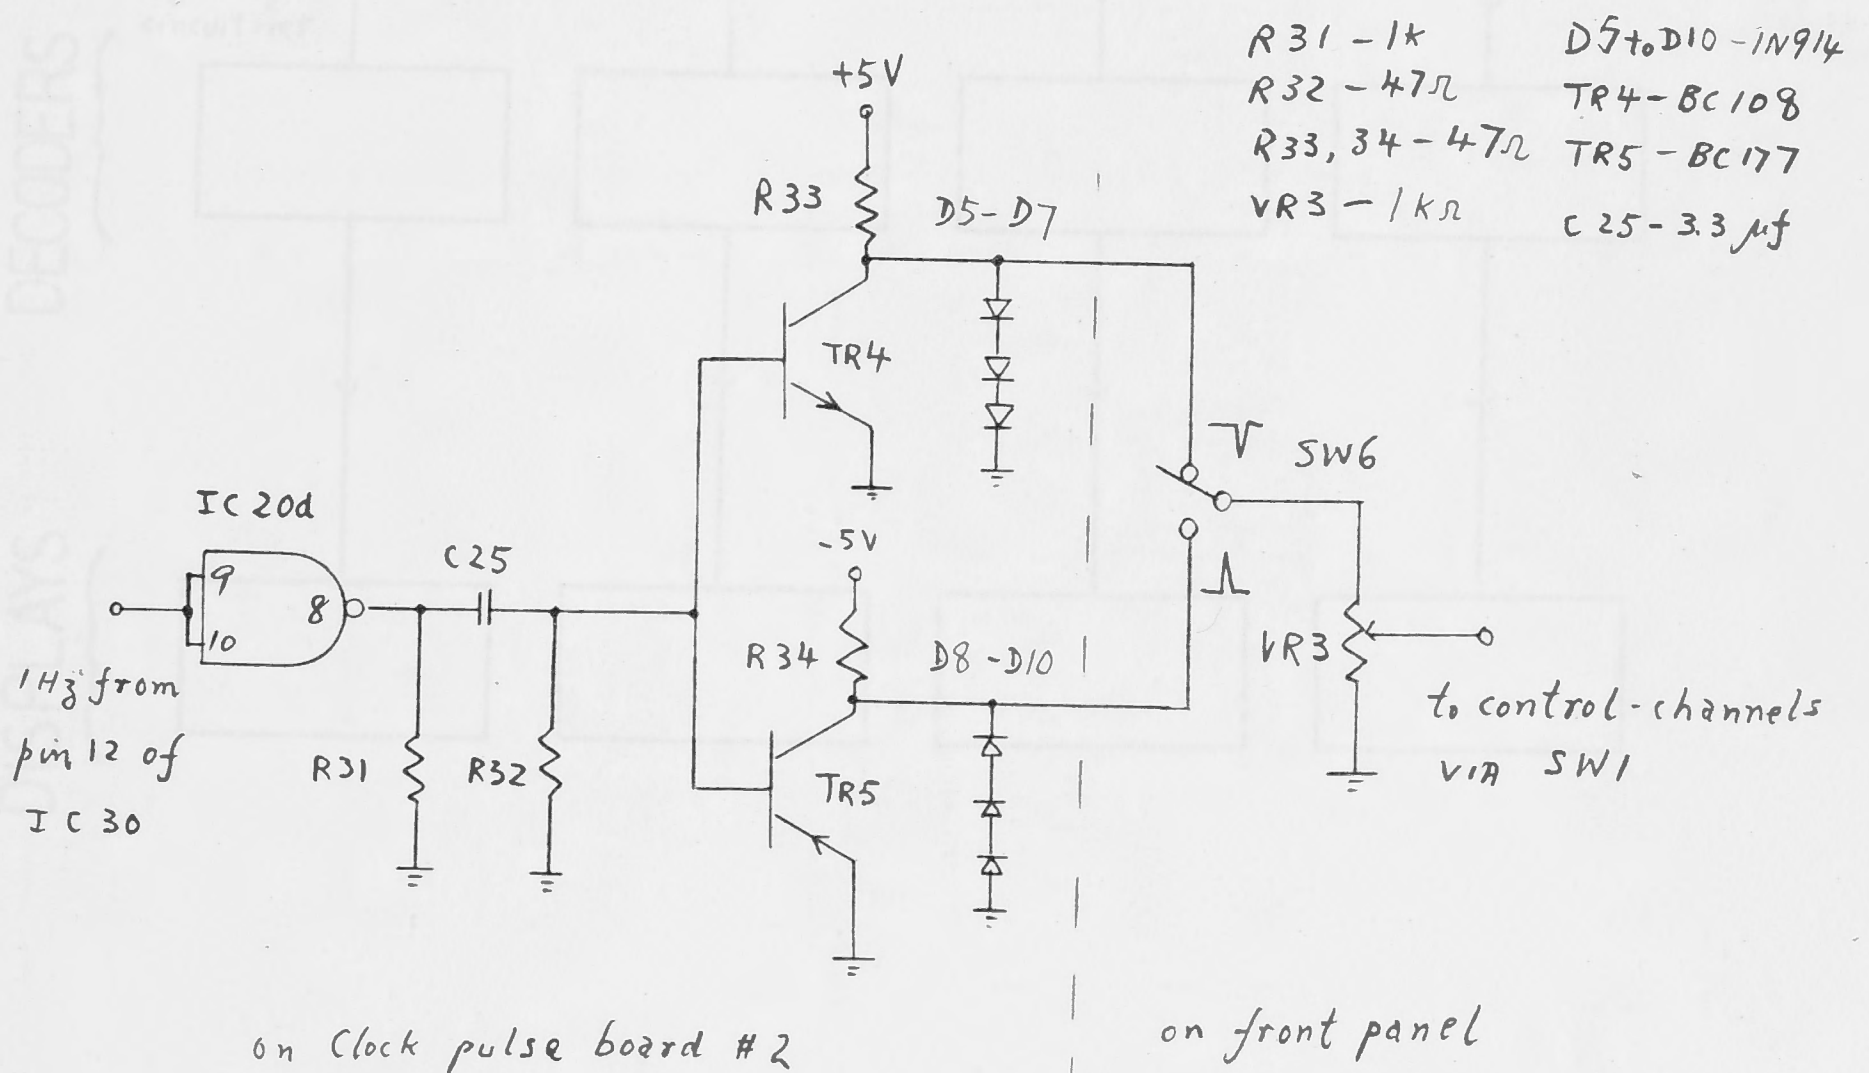 R31 - 1k
R32 - 47Ω
R33, 34 - 47Ω
VR3 - 1kΩ
D5 to D10 - IN914
TR4 - BC108
TR5 - BC177
C25 - 3.3 μf
+5V
R33
D5-D7
TR4
SW6
IC20d
C25
-5V
9
8
10
R34
D8-D10
VR3
1Hz from
pin 12 of
IC30
R31
R32
TR5
to control-channels
VIA SW1
on Clock pulse board #2
on front panel
DECODERS
DISPLAYS